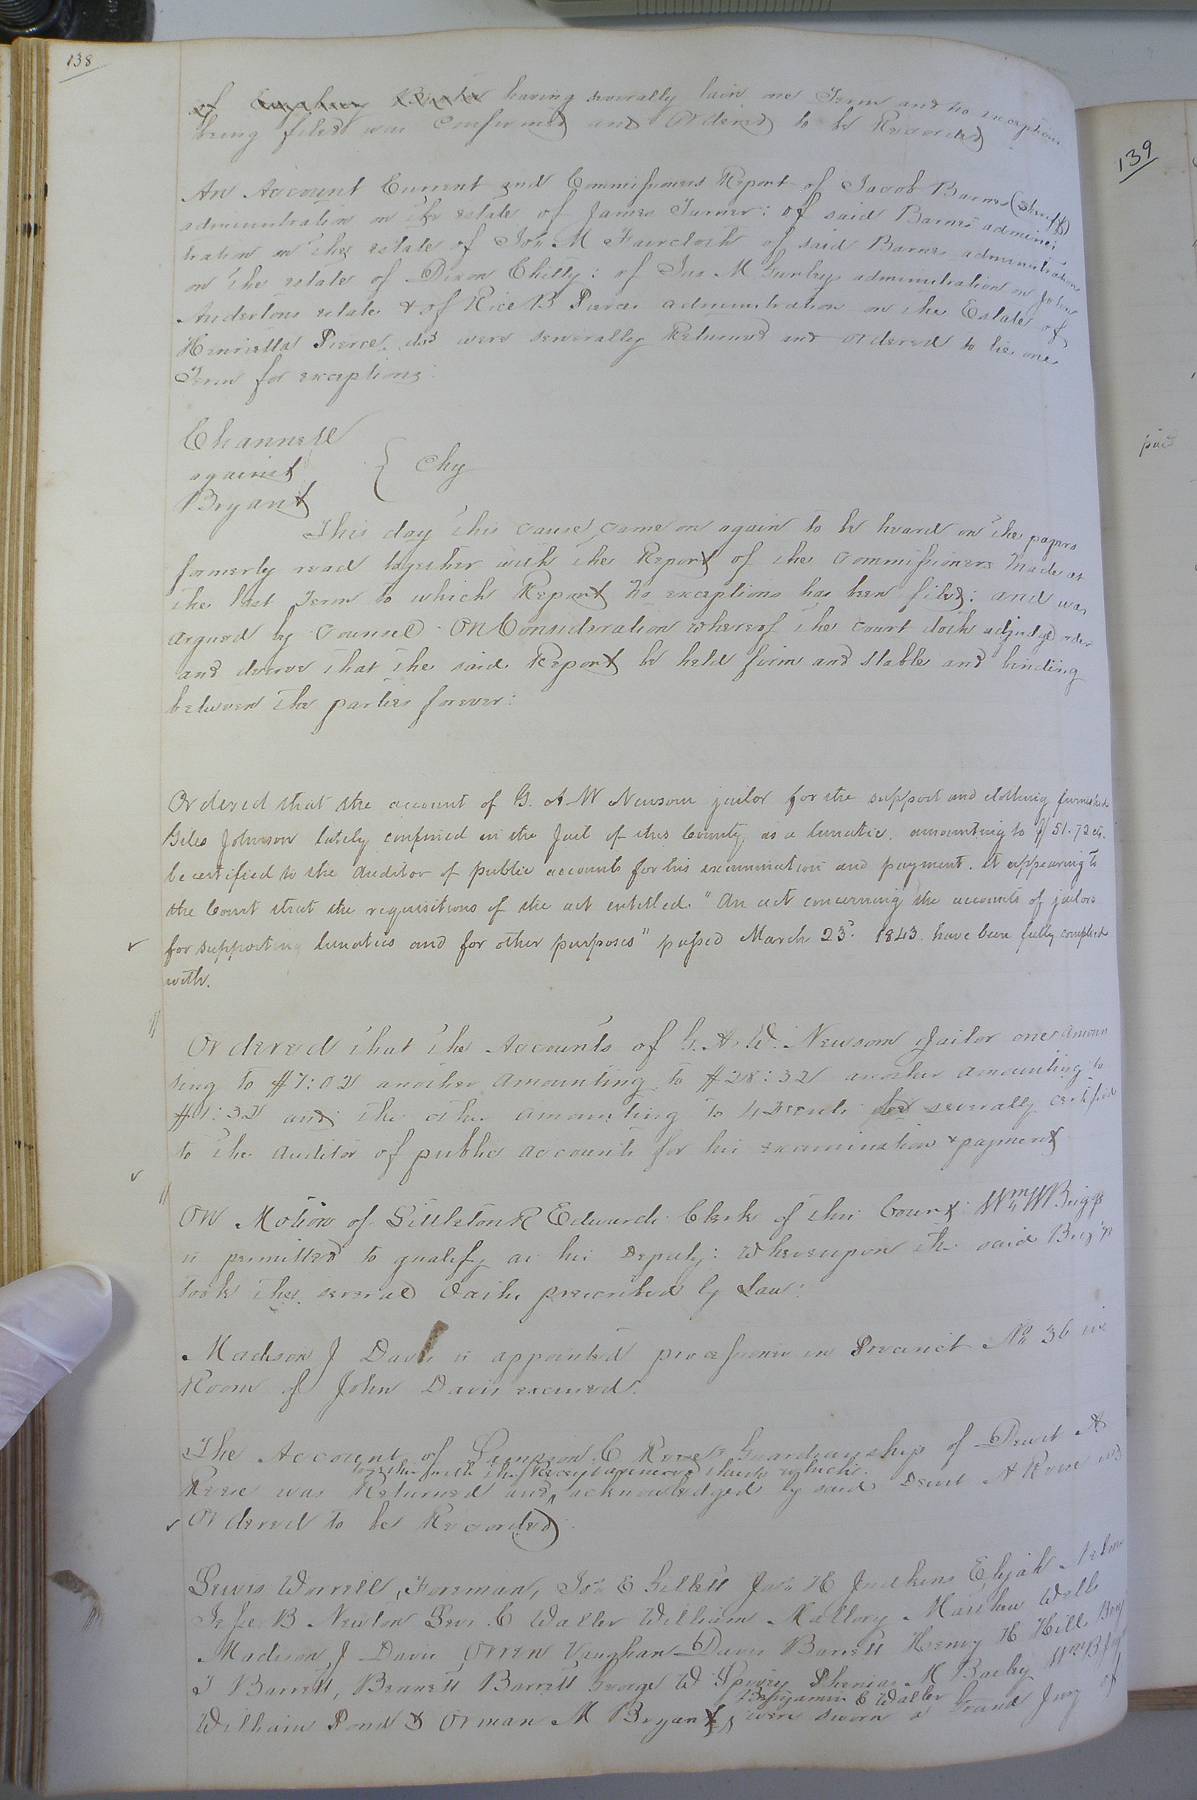 138
of having severally lain one Term and no exceptions
being filed was Confirmed and Ordered to be Recorded
An Account Current and Commissioners Report of Jacob Barnes (Sheriff)
administration on the estate of James Turner: of said Barnes adminis
tration on the estate of Jos. M Faircloth of said Barnes administration
on the estate of Dixon Chitty: of Jno M Gurley administration on John
Andertons estate & of Rice B Pierce administration on the Estate of
Henrietta Pierce decd were severally Returned and ordered to lie one
Term for exceptions:
Channell
against } Chy
Bryant
This day this cause came on again to be heard on the papers
formerly read together with the Report of the Commissioners made at
the last Term to which Report no exceptions has been filed: and was
argued by Counsel - On Consideration whereof the court doth adjudge order
and decree that the said Report be held firm and stable and binding
between the parties forever:
Ordered that the account of G. A W Newsom jailor for the support and clothing furnished
Giles Johnson lately confined in the Jail of this County, as a lunatic, amounting to $51.72 cts.
be certified to the Auditor of public accounts for his examination and payment. It appearing to
the Court that the requisitions of the act entitled "An act concerning the accounts of jailors
for supporting lunatics and for other purposes" passed March 23d. 1843 have been fully complied
with.
Ordered that the Accounts of G. A. W. Newsom Jailor one amoun
ting to $7:02 another amounting to $28:32 another amounting to
$1:32 and the other amounting to 43 cents be severally certified
to the Auditor of public accounts for his examination & payment
On Motion of Littleton R Edwards Clerk of this Court Wm W Briggs
is permitted to qualify as his Deputy: Whereupon the said Briggs
took the several Oaths prescribed by Law:
Madison J Davis is appointed processioner in Precinct No 36 in
Room of John Davis excused.
The Account of Simpson C Rose's Guardianship of Drewt A
together with the Receipt annexed thereto which
Rose was Returned and acknowledged by said Drewt A Rose was
Ordered to be Recorded
Lewis Worrell, Foreman, Jos. E Gillett Jas. H Judkins Elijah
Jesse B Newton Benj. C Waller William Mallory Matthew Wells
Madison J Davis Orren Vaughan Davis Barrett Henry H Hill
T Barrett, Bennett Barrett George W Spivey Phenias M Barley Wm B
Benjamin C Waller
William Pond & Orman M Bryant, were sworn a Grand Jury of
139
paid